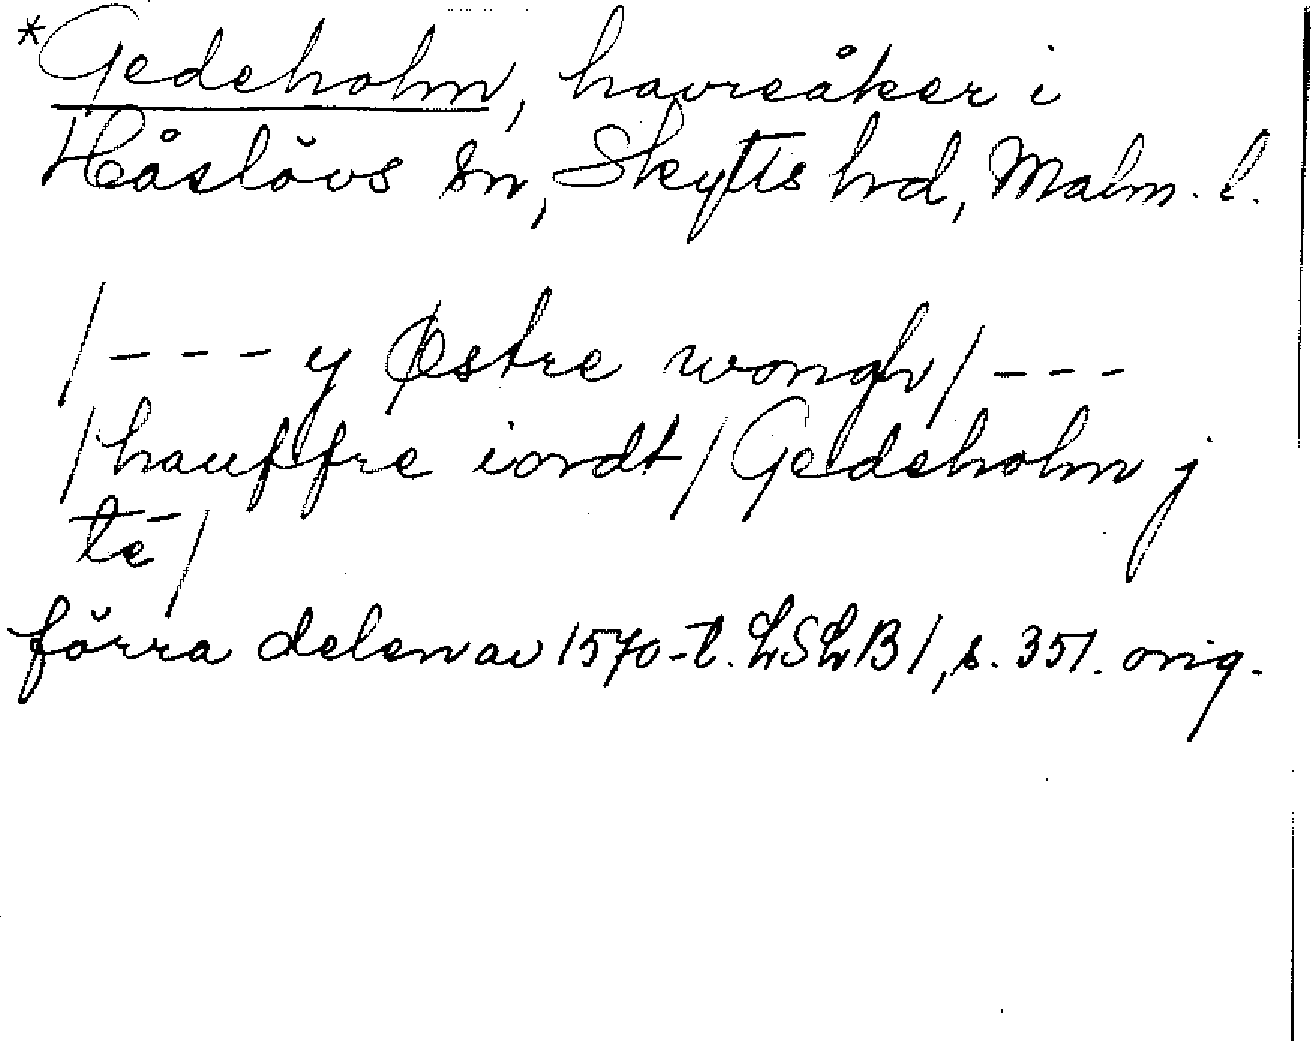 *Gedeholm, havreåker i
Håslövs sn, Skytts hrd, Malm. l.
/--- y Østre wongh/---
/hauffre iordt/Gedeholm j
tē/
förra delen av 1570-t. LSLB 1, s. 351. orig.